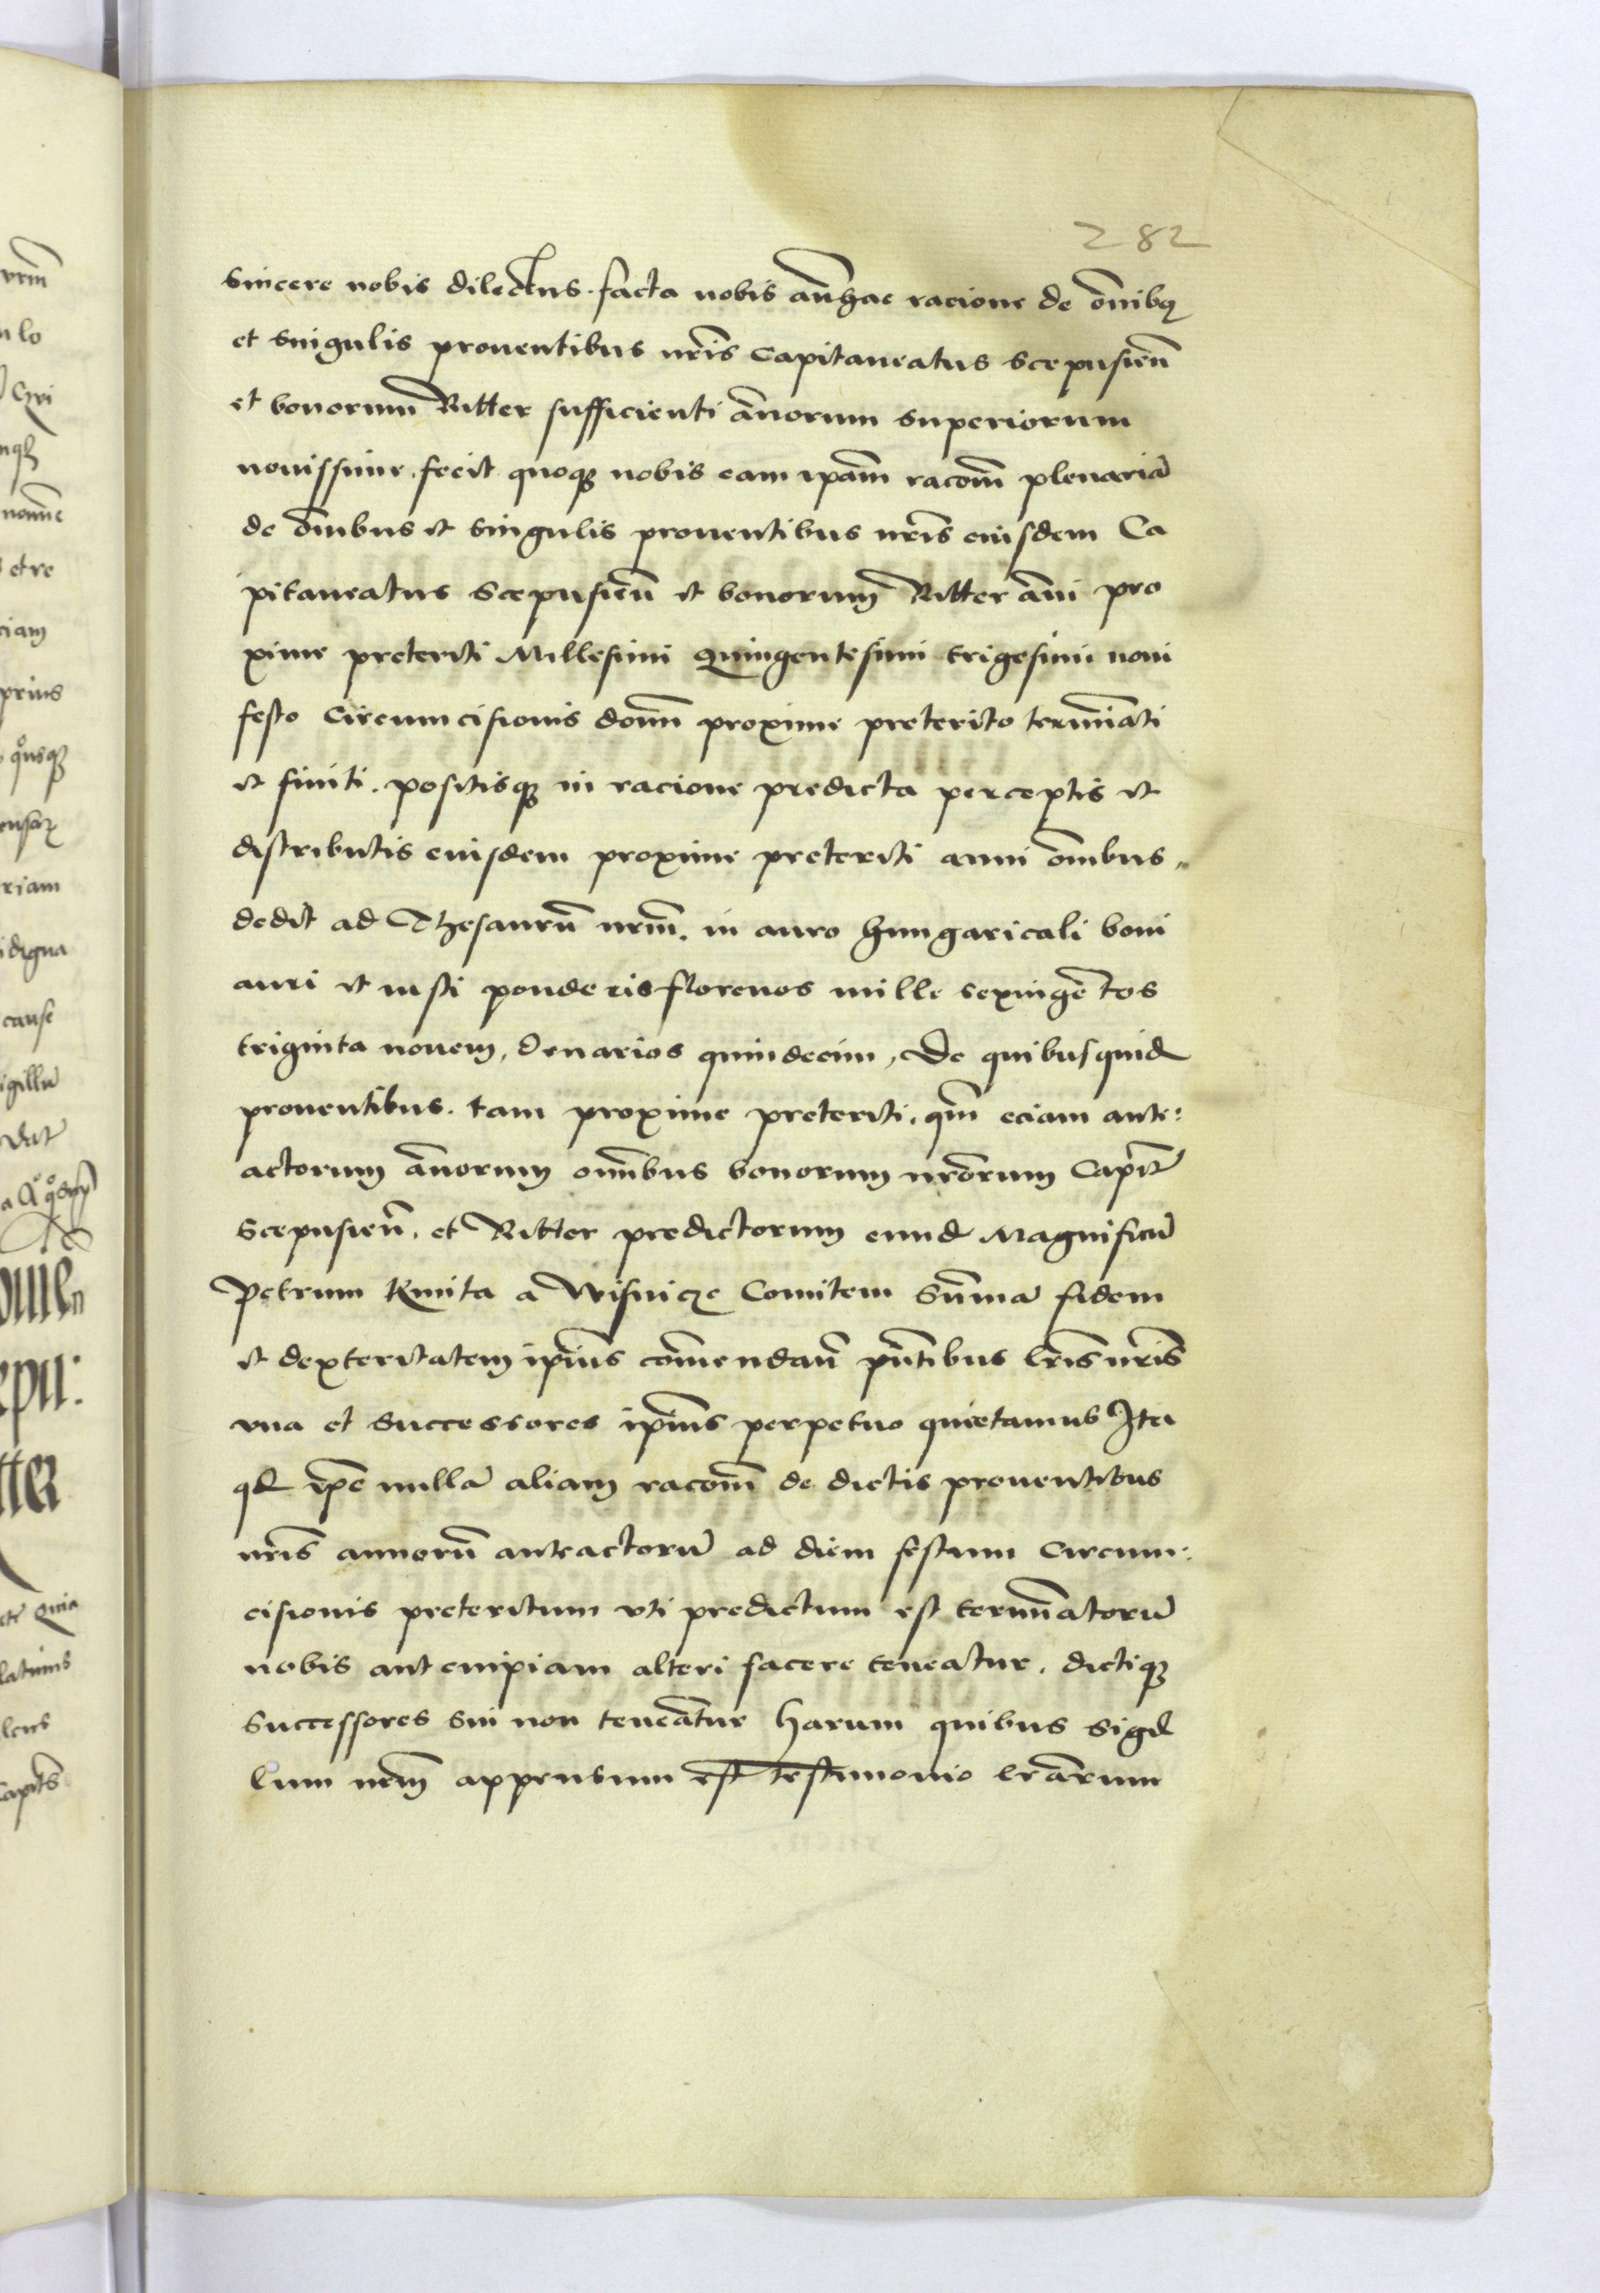 282
sincere nobis dilectus. facta nobis antħac racione de om̄ibꝫ
et singulis prouentibus nr̄is Capitaneatus Scepusien̄
et bonorum Ritter sufficienti an̄orum superiorum
nouissime. fecit quoqꝫ nobis eam ip̄am racōm̄ plenariā
de om̄ibus et singulis prouentibus nr̄is eiusdem Ca
pitaneatus Scepusien̄ et bonorum Ritter an̄i pro
xime preteriti Millesimi Quingentesimi trigesimi noni
festo Circumcisionis domī proxime preterito termīati
et finiti. positisqꝫ in racione predicta perceptis et
distributis eiusdem proxime preteriti anni om̄ibus,
dedit ad Thesaurū nr̄m̄. in auro hungaricali boni
auri et iusti ponderis florenos mille sexingētos
triginta nouem, denarios quindecim, De quibusquid
prouentibus. tam proxime preteriti. qm̄ eciam ante:
actorum an̄orum om̄ibus bonorum nr̄orum Capit̄
Scepusien̄. et Ritter predictorum eund Magnificū
Petrum Kmita a Wisnicze Comitem Sum̄ā fidem
et dexteritatem ip̄ius com̄endan̄ pn̄tibus lr̄is nr̄is
vna et successores ip̄ius perpetuo quietamus Ita
qd ip̄e nullā aliam racōm̄ de dictis prouentibus
nr̄is annorū anteactorū ad diem festum Circum:
cisionis preteritum vti predictum est termīatorū
nobis aut cuipiam alteri facere teneatur. dictiqꝫ
successores sui non teneātur harum quibus sigil
lum nr̄m̄ appensum est testimonio lr̄arum